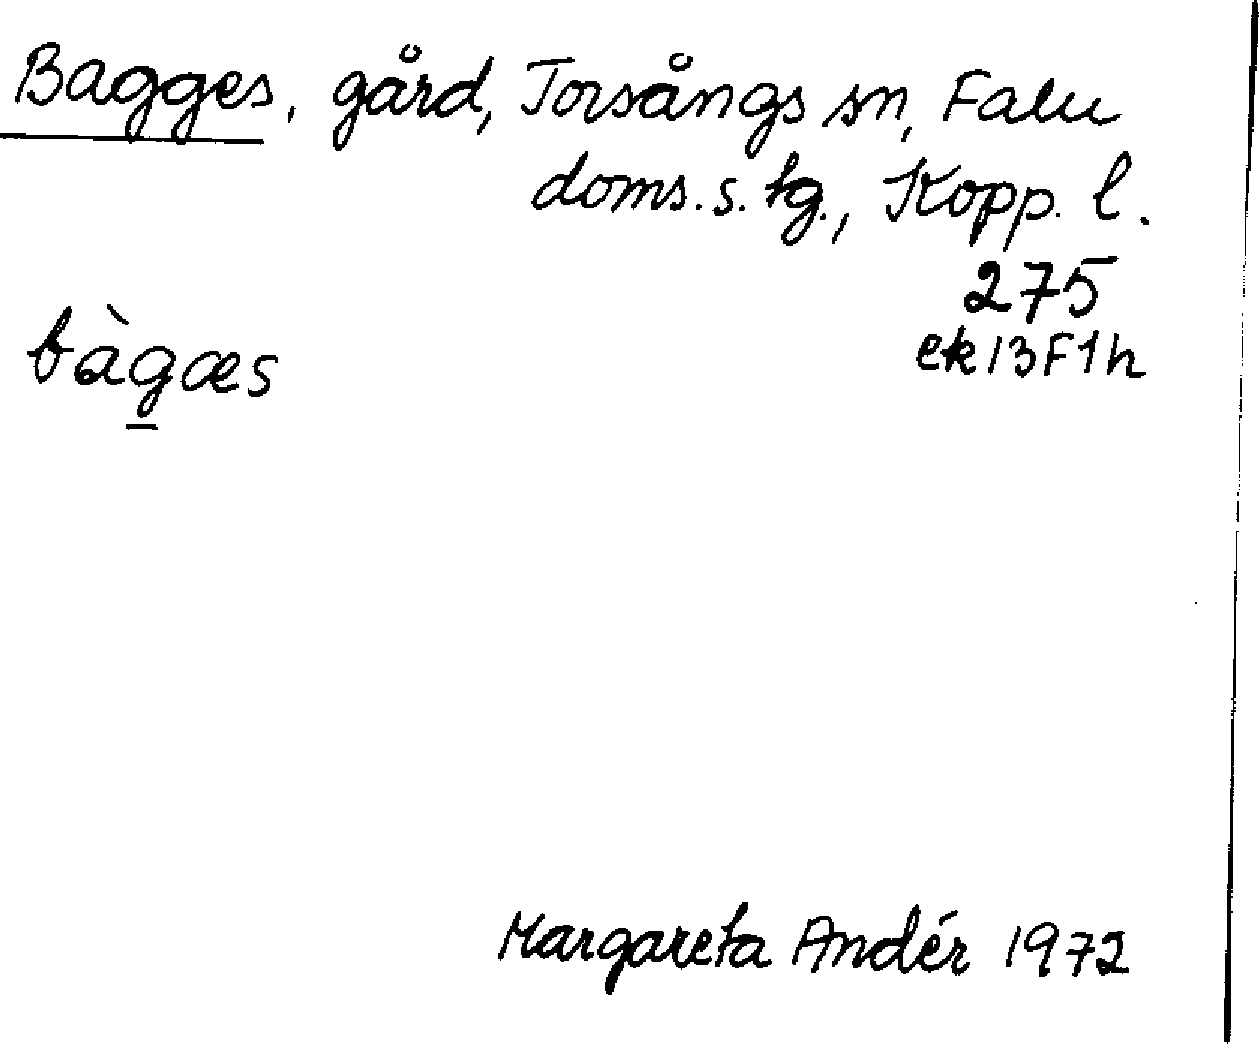 Bagges, gård, Torsångs sn, Falu
doms.s. tg., Kopp. l.
275
ek 13F1h
bàg̲æs
Margareta Andér 1972